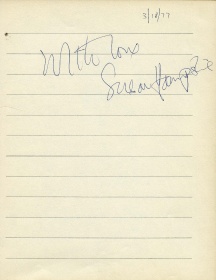 3/18/77
With love
Susan Hampshire